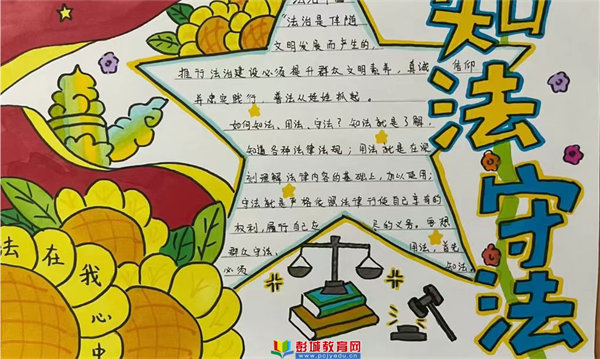 知法守法
"法治是伴随
文明发展而产生的,
推行法治建设必须提升群众文明素养,真诚信仰
并忠实践行。普法从娃娃抓起。
如何知法、用法、守法?知法就是了解,
知道各种法律法规;用法就是在深
刻理解法律内容的基础上,加以运用;
守法就是严格依照法律行使自己享有的
权利,履行自己应尽的义务。要想
群众守法、用法,首先
必须知法。
法在我心中
彭城教育网
www.pcjyedu.cn